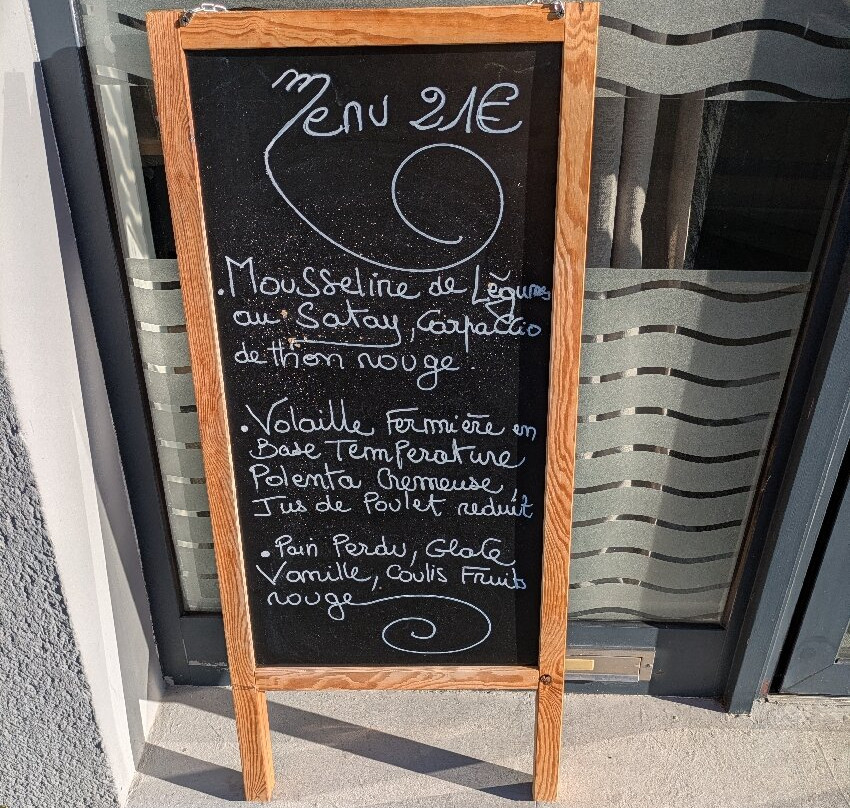 Menu 21€
. Mousseline de Légumes
au Satay, Carpaccio
de thon rouge.
. Volaille Fermière en
Base Température
Polenta Cremeuse,
Jus de Poulet reduit
. Pain Perdu, Glace
Vanille, Coulis Fruits
rouge